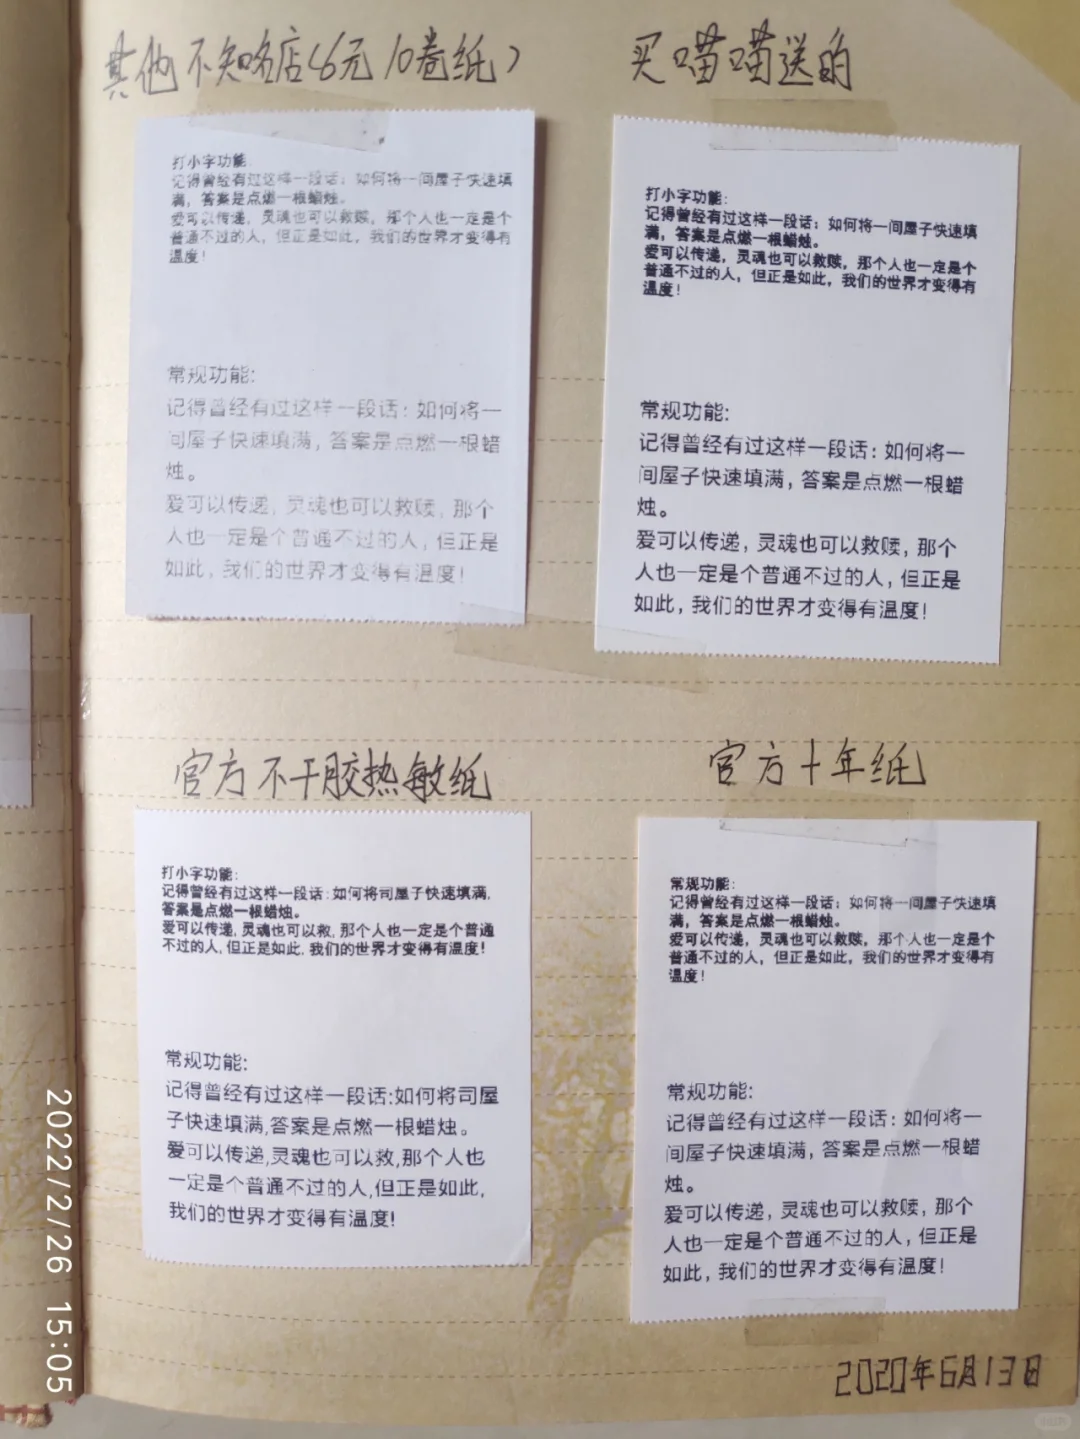 其他不知名店(6元10卷纸)
打小字功能
记得曾经有过这样一段话：如何将一间屋子快速填
满，答案是点燃一根蜡烛。
爱可以传递，灵魂也可以救赎，那个人也一定是个
普通不过的人，但正是如此，我们的世界才变得有
温度！
常规功能:
记得曾经有过这样一段话：如何将一
间屋子快速填满，答案是点燃一根蜡
烛。
爱可以传递，灵魂也可以救赎，那个
人也一定是个普通不过的人，但正是
如此，我们的世界才变得有温度！
买喵喵送的
打小字功能:
记得曾经有过这样一段话：如何将一间屋子快速填
满，答案是点燃一根蜡烛。
爱可以传递，灵魂也可以救赎，那个人也一定是个
普通不过的人，但正是如此，我们的世界才变得有
温度！
常规功能:
记得曾经有过这样一段话：如何将一
间屋子快速填满，答案是点燃一根蜡
烛。
爱可以传递，灵魂也可以救赎，那个
人也一定是个普通不过的人，但正是
如此，我们的世界才变得有温度！
官方不干胶热敏纸
打小字功能:
记得曾经有过这样一段话:如何将司屋子快速填满,
答案是点燃一根蜡烛。
爱可以传递,灵魂也可以救,那个人也一定是个普通
不过的人,但正是如此,我们的世界才变得有温度!
常规功能:
记得曾经有过这样一段话:如何将司屋
子快速填满,答案是点燃一根蜡烛。
爱可以传递,灵魂也可以救,那个人也
一定是个普通不过的人,但正是如此,
我们的世界才变得有温度!
官方十年纸
常规功能:
记得曾经有过这样一段话：如何将一间屋子快速填
满，答案是点燃一根蜡烛。
爱可以传递，灵魂也可以救赎，那个人也一定是个
普通不过的人，但正是如此，我们的世界才变得有
温度！
常规功能:
记得曾经有过这样一段话：如何将一
间屋子快速填满，答案是点燃一根蜡
烛。
爱可以传递，灵魂也可以救赎，那个
人也一定是个普通不过的人，但正是
如此，我们的世界才变得有温度！
2020年6月13日
2022/2/26 15:05